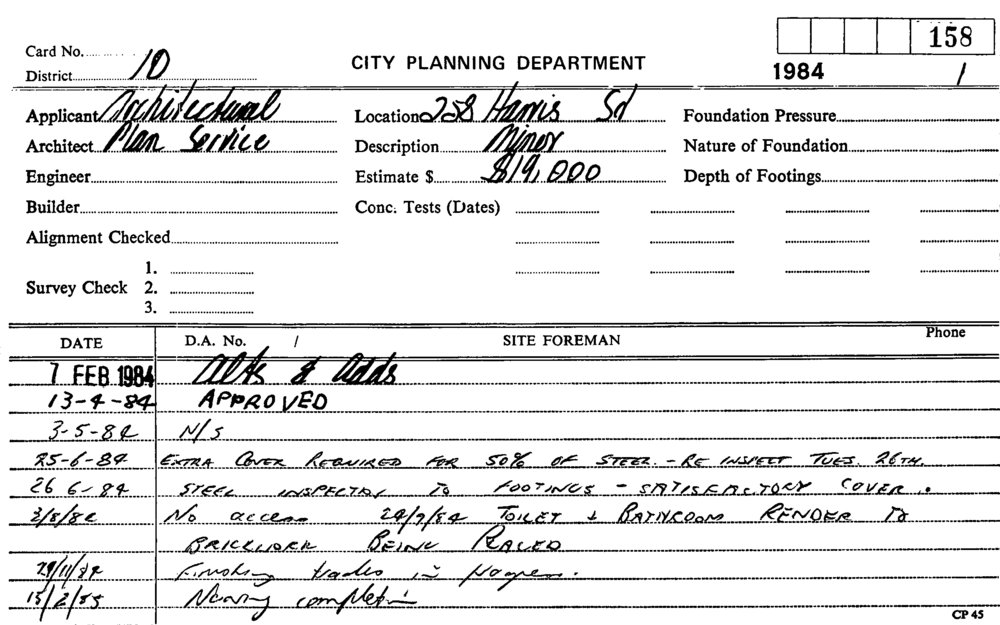 158
Card No.
CITY PLANNING DEPARTMENT
District 10
1984 /
Applicant Architectural Location 258 Harris Sd Foundation Pressure
Architect Plan Service Description Minor Nature of Foundation
Engineer Estimate $ $19,000 Depth of Footings
Builder Conc. Tests (Dates)
Alignment Checked
1.
Survey Check 2.
3.
DATE D.A. No. / SITE FOREMAN Phone
7 FEB 1984 Alts & Adds
13-4-84 APPROVED
3-5-84 N/S
25-6-84 EXTRA COVER REQUIRED FOR 50% OF STEEL - RE INSPECT TUES. 26TH.
26 6-84 STEEL INSPECTN TO FOOTINGS - SATISFACTORY COVER.
3/8/84 No access 24/9/84 TOILET & BATHROOM RENDER TO
BRICKWORK BEING PLACED
29/11/84 Finishing trades in progress.
15/2/85 Nearing completn
CP 45